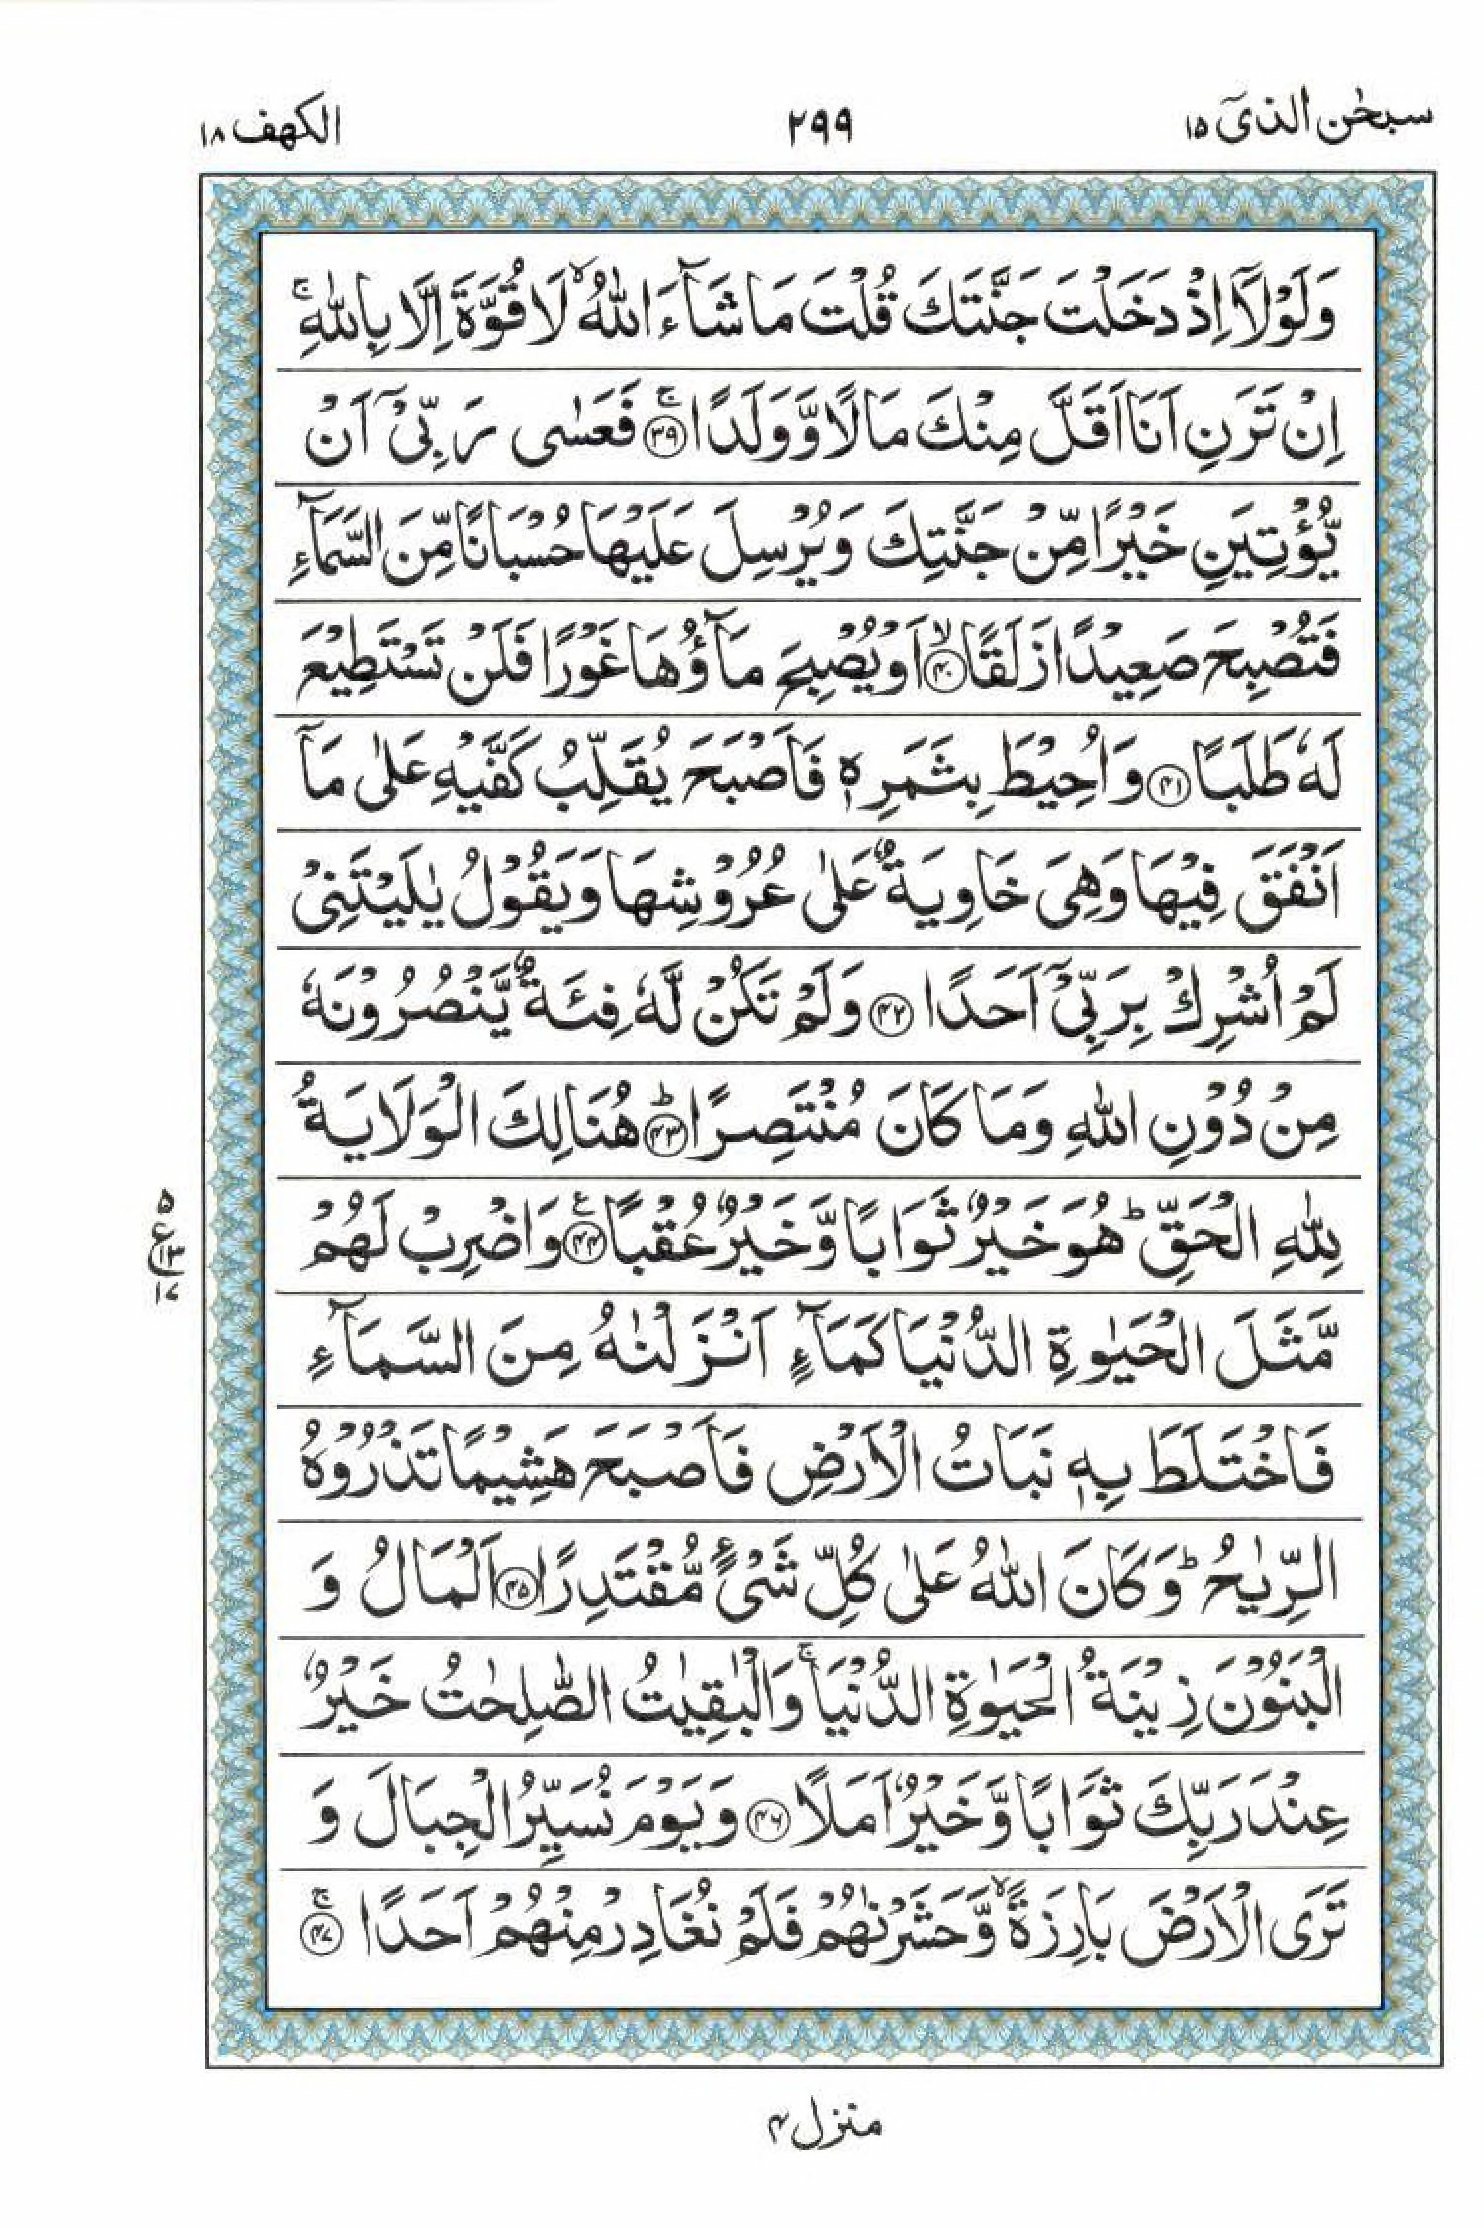 سبحٰن الذیٓ ۱۵
۲۹۹
الکهف ۱۸
وَلَوْلَاۤ اِذْ دَخَلْتَ جَنَّتَكَ قُلْتَ مَا شَآءَ اللّٰهُ ۙ لَا قُوَّةَ اِلَّا بِاللّٰهِ ۚ
اِنْ تَرَنِ اَنَا اَقَلَّ مِنْكَ مَالًا وَّوَلَدًا ۚ ﴿۳۹﴾ فَعَسٰى رَبِّیْۤ اَنْ
یُّؤْتِیَنِ خَیْرًا مِّنْ جَنَّتِكَ وَیُرْسِلَ عَلَیْهَا حُسْبَانًا مِّنَ السَّمَآءِ
فَتُصْبِحَ صَعِیْدًا زَلَقًا ۙ ﴿۴۰﴾ اَوْ یُصْبِحَ مَآؤُهَا غَوْرًا فَلَنْ تَسْتَطِیْعَ
لَهٗ طَلَبًا ﴿۴۱﴾ وَاُحِیْطَ بِثَمَرِهٖ فَاَصْبَحَ یُقَلِّبُ كَفَّیْهِ عَلٰى مَاۤ
اَنْفَقَ فِیْهَا وَهِیَ خَاوِیَةٌ عَلٰى عُرُوْشِهَا وَیَقُوْلُ یٰلَیْتَنِیْ
لَمْ اُشْرِكْ بِرَبِّیْۤ اَحَدًا ﴿۴۲﴾ وَلَمْ تَكُنْ لَّهٗ فِئَةٌ یَّنْصُرُوْنَهٗ
مِنْ دُوْنِ اللّٰهِ وَمَا كَانَ مُنْتَصِرًا ؕ ﴿۴۳﴾ هُنَالِكَ الْوَلَایَةُ
لِلّٰهِ الْحَقِّ ؕ هُوَ خَیْرٌ ثَوَابًا وَّخَیْرٌ عُقْبًا ﴿۴۴﴾ ع وَاضْرِبْ لَهُمْ
۵
ع
۱۳
۱۷
مَّثَلَ الْحَیٰوةِ الدُّنْیَا كَمَآءٍ اَنْزَلْنٰهُ مِنَ السَّمَآءِ
فَاخْتَلَطَ بِهٖ نَبَاتُ الْاَرْضِ فَاَصْبَحَ هَشِیْمًا تَذْرُوْهُ
الرِّیٰحُ ؕ وَكَانَ اللّٰهُ عَلٰى كُلِّ شَیْءٍ مُّقْتَدِرًا ﴿۴۵﴾ اَلْمَالُ وَ
الْبَنُوْنَ زِیْنَةُ الْحَیٰوةِ الدُّنْیَا ۚ وَالْبٰقِیٰتُ الصّٰلِحٰتُ خَیْرٌ
عِنْدَ رَبِّكَ ثَوَابًا وَّخَیْرٌ اَمَلًا ﴿۴۶﴾ وَیَوْمَ نُسَیِّرُ الْجِبَالَ وَ
تَرَى الْاَرْضَ بَارِزَةً ۙ وَّحَشَرْنٰهُمْ فَلَمْ نُغَادِرْ مِنْهُمْ اَحَدًا ۚ ﴿۴۷﴾
منزل ۴